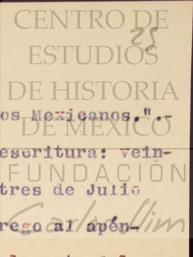 CENTRO DE
25
ESTUDIOS
DE HISTORIA
os Mexicanos.".-
DE MEXICO
escritura: vein-
FUNDACIÓN
tres de Julio
Carlos Slim
rego al apén-